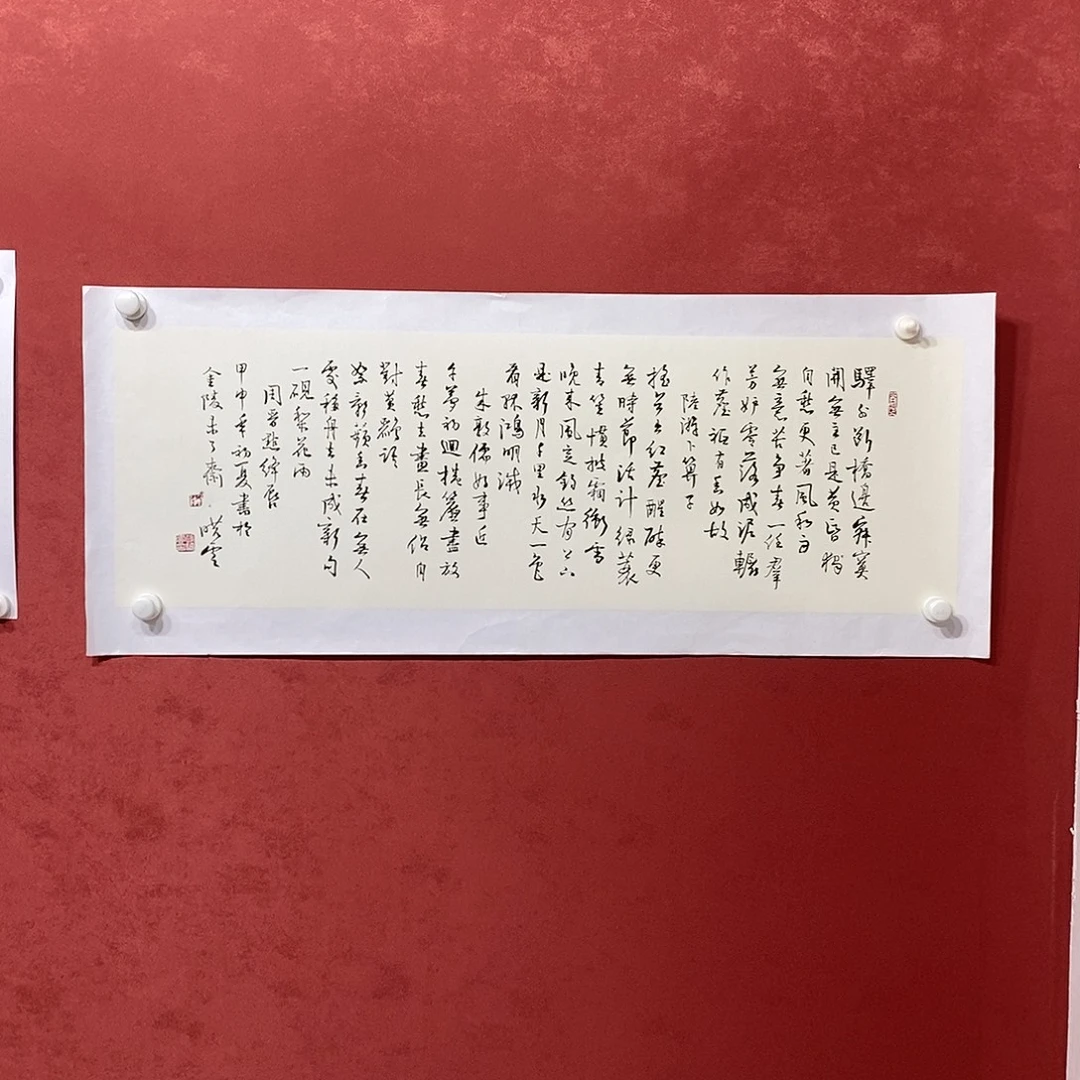 驛外斷橋邊寂寞
開無主已是黃昏獨
自愁更著風和雨
無意苦爭春一任羣
芳妒零落成泥輾
作塵祗有香如故
陸游卜算子
搖首出紅塵醒醉更
無時節活計綠蓑
青笠慣披霜衝雪
晚來風定釣絲閒上下
是新月千里水天一色
看孤鴻明滅
朱敦儒好事近
午夢初迴捲簾盡放
春愁去晝長無侶自
對黃鸝語
絮影蘋香春在無人
處移舟去未成新句
一硯梨花雨
周晉點絳唇
甲申年初夏書於
金陵未了齋